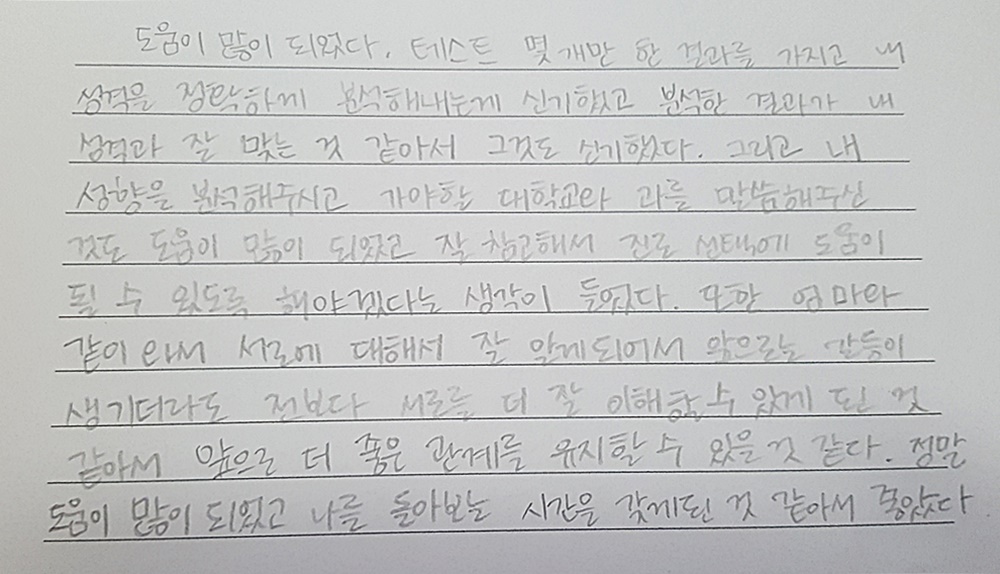 도움이 많이 되었다. 테스트 몇 개만 한 결과를 가지고 내
성격을 정확하게 분석해내는게 신기했고 분석한 결과가 내
성격과 잘 맞는 것 같아서 그것도 신기했다. 그리고 내
성향을 분석해주시고 가야할 대학교와 과를 말씀해주신
것도 도움이 많이 되었고 잘 참고해서 진로 선택에 도움이
될 수 있도록 해야겠다는 생각이 들었다. 또한 엄마와
같이 와서 서로에 대해서 잘 알게되어서 앞으로는 갈등이
생기더라도 전보다 서로를 더 잘 이해할 수 있게 된 것
같아서 앞으로 더 좋은 관계를 유지할 수 있을 것 같다. 정말
도움이 많이 되었고 나를 돌아보는 시간을 갖게된 것 같아서 좋았다